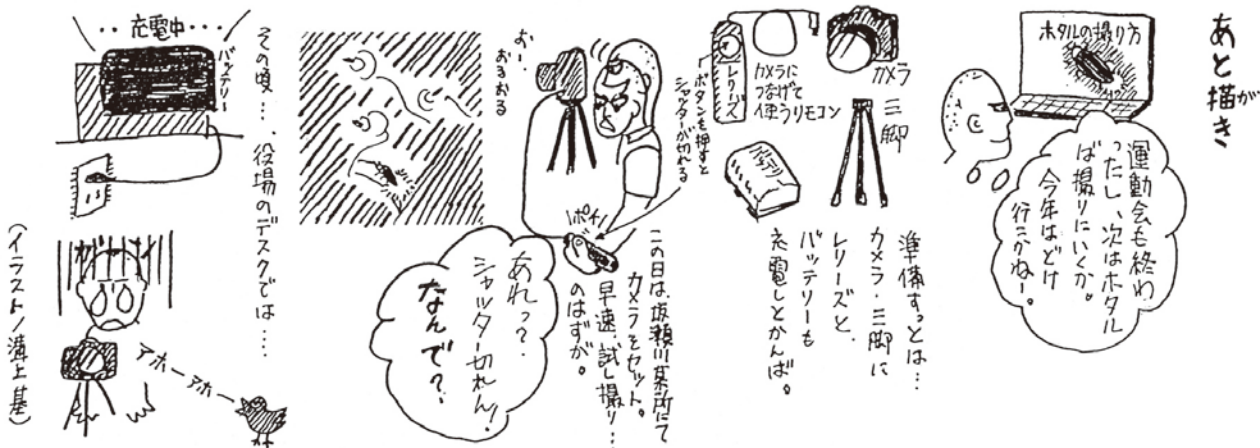 あと描が
き
ホタルの撮り方
運動会も終わ
ったし、次はホタル
ば撮りにいくか。
今年はどけ
行こかねー。
カメラ
三脚
カメラに
つなげて
使うリモコン
レリーズ
「ボタンを押すと
シャッターが切れる
バッテリー
準備すっとは…
カメラ・三脚に
レリーズと、
バッテリーも
充電しとかんば。
お〜、
おるおる
ポチ
この日は、坂瀬川某所にて
カメラをセット。
早速、試し撮り…
のはずが。
あれっ？
シャッター切れん！
なんで？
その頃…、役場のデスクでは…
‥充電中‥
バッテリー
アホーアホー
（イラスト／溝上基）